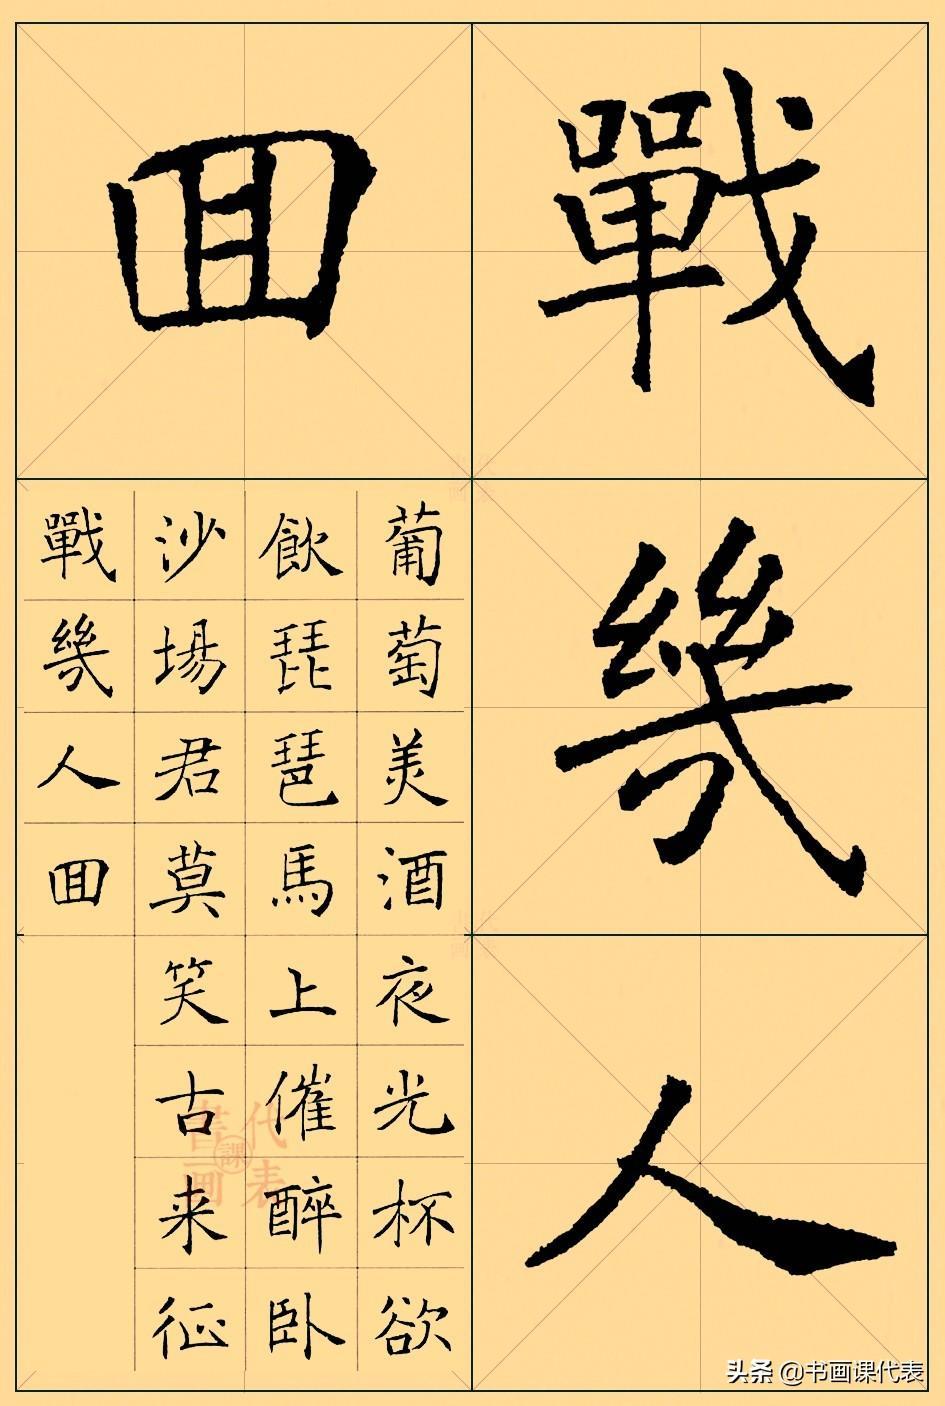 戰
幾
人
囬
葡萄美酒夜光杯欲
飲琵琶馬上催醉卧
沙場君莫笑古来征
戰幾人囬
書畫課代表
头条 @书画课代表